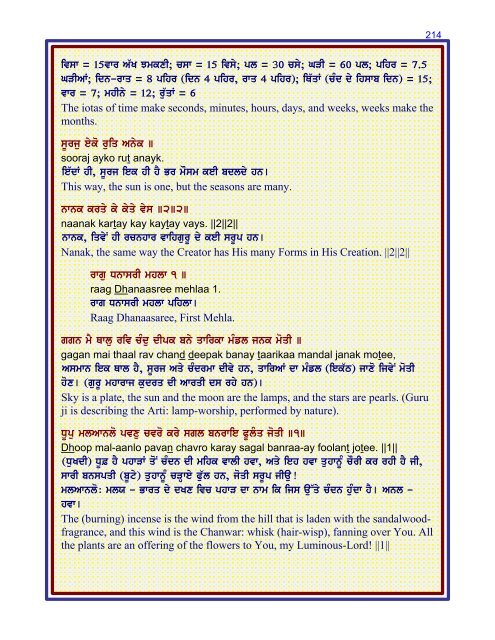 214
ਵਿਸਾ = 15ਵਾਰ ਅੱਖ ਝਮਕਣੀ; ਚਸਾ = 15 ਵਿਸੇ; ਪਲ = 30 ਚਸੇ; ਘੜੀ = 60 ਪਲ; ਪਹਿਰ = 7.5
ਘੜੀਆਂ; ਦਿਨ-ਰਾਤ = 8 ਪਹਿਰ (ਦਿਨ 4 ਪਹਿਰ, ਰਾਤ 4 ਪਹਿਰ); ਥਿੱਤਾਂ (ਚੰਦ ਦੇ ਹਿਸਾਬ ਦਿਨ) = 15;
ਵਾਰ = 7; ਮਹੀਨੇ = 12; ਰੁੱਤਾਂ = 6
The iotas of time make seconds, minutes, hours, days, and weeks, weeks make the
months.
ਸੂਰਜੁ ਏਕੋ ਰੁਤਿ ਅਨੇਕ ॥
sooraj ayko rut anayk.
ਇੰਦਾਂ ਹੀ, ਸੂਰਜ ਇਕ ਹੀ ਹੈ ਭਰ ਮੌਸਮ ਕਈ ਬਦਲਦੇ ਹਨ।
This way, the sun is one, but the seasons are many.
ਨਾਨਕ ਕਰਤੇ ਕੇ ਕੇਤੇ ਵੇਸ ॥੨॥੨॥
naanak kartay kay kaytay vays. ||2||2||
ਨਾਨਕ, ਤਿਵੇਂ ਹੀ ਰਚਨਹਾਰ ਵਾਹਿਗੁਰੂ ਦੇ ਕਈ ਸਰੂਪ ਹਨ।
Nanak, the same way the Creator has His many Forms in His Creation. ||2||2||
ਰਾਗੁ ਧਨਾਸਰੀ ਮਹਲਾ ੧ ॥
raag Dhanaasree mehlaa 1.
ਰਾਗ ਧਨਾਸਰੀ ਮਹਲਾ ਪਹਿਲਾ।
Raag Dhanaasaree, First Mehla.
ਗਗਨ ਮੈ ਥਾਲੁ ਰਵਿ ਚੰਦੁ ਦੀਪਕ ਬਨੇ ਤਾਰਿਕਾ ਮੰਡਲ ਜਨਕ ਮੋਤੀ ॥
gagan mai thaal rav chand deepak banay taarikaa mandal janak motee,
ਅਸਮਾਨ ਇਕ ਥਾਲ ਹੈ, ਸੂਰਜ ਅਤੇ ਚੰਦਰਮਾ ਦੀਵੇ ਹਨ, ਤਾਰਿਆਂ ਦਾ ਮੰਡਲ (ਇਕੱਠ) ਜਾਣੋ ਜਿਵੇਂ ਮੋਤੀ
ਹੋਣ। (ਗੁਰੂ ਮਹਾਰਾਜ ਕੁਦਰਤ ਦੀ ਆਰਤੀ ਦਸ ਰਹੇ ਹਨ)।
Sky is a plate, the sun and the moon are the lamps, and the stars are pearls. (Guru
ji is describing the Arti: lamp-worship, performed by nature).
ਧੂਪੁ ਮਲਆਨਲੋ ਪਵਣੁ ਚਵਰੋ ਕਰੇ ਸਗਲ ਬਨਰਾਇ ਫੂਲੰਤ ਜੋਤੀ ॥੧॥
Dhoop mal-aanlo pavan chavro karay sagal banraa-ay foolant jotee. ||1||
(ਧੁਖਦੀ) ਧੂਫ਼ ਹੈ ਪਹਾੜਾਂ ਤੋਂ ਚੰਦਨ ਦੀ ਮਹਿਕ ਵਾਲੀ ਹਵਾ, ਅਤੇ ਇਹ ਹਵਾ ਤੁਹਾਨੂੰ ਚੌਰੀ ਕਰ ਰਹੀ ਹੈ ਜੀ,
ਸਾਰੀ ਬਨਸਪਤੀ (ਬੂਟੇ) ਤੁਹਾਨੂੰ ਚੜ੍ਹਾਏ ਫੁੱਲ ਹਨ, ਜੋਤੀ ਸਰੂਪ ਜੀਉ!
ਮਲਆਨਲੋ: ਮਲਯ - ਭਾਰਤ ਦੇ ਦਖਣ ਵਿਚ ਪਹਾੜ ਦਾ ਨਾਮ ਕਿ ਜਿਸ ਉੱਤੇ ਚੰਦਨ ਹੁੰਦਾ ਹੈ। ਅਨਲ -
ਹਵਾ।
The (burning) incense is the wind from the hill that is laden with the sandalwood-
fragrance, and this wind is the Chanwar: whisk (hair-wisp), fanning over You. All
the plants are an offering of the flowers to You, my Luminous-Lord! ||1||